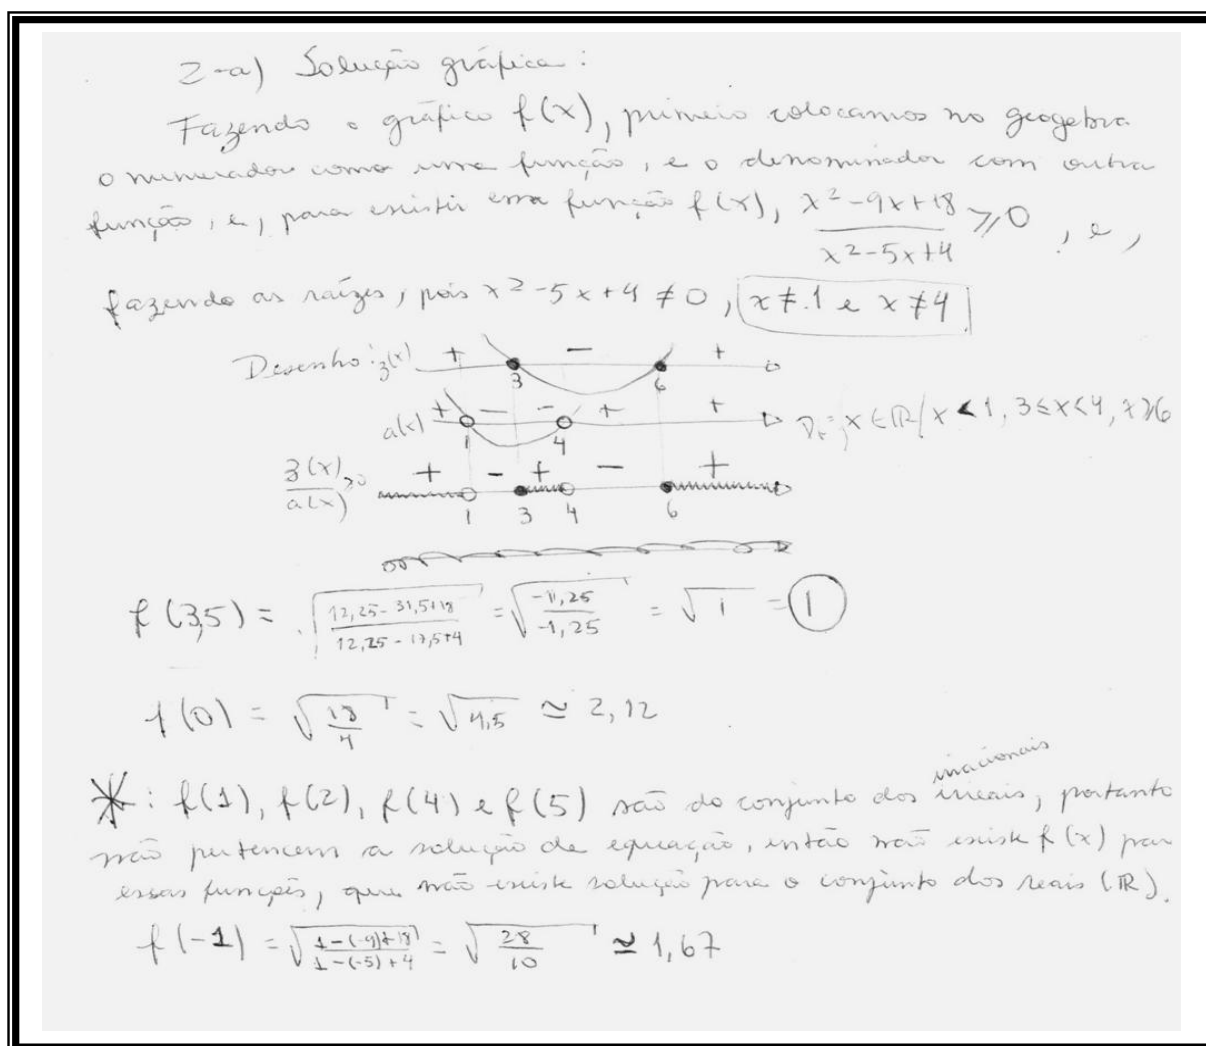 2-a) Solução gráfica:
Fazendo o gráfico f(x), primeio colocamos no geogebra
o numerador como uma função, e o denominador com outra
função, e, para existir essa função f(x), x²-9x+18 / x²-5x+4 ⩾ 0, e,
fazendo as raízes, pois x²-5x+4 ≠ 0, x ≠ 1 e x ≠ 4
Desenho: z(x) + 3 - 6 +
a(x) + 1 - - 4 + + D: x ∈ ℝ / x < 1, 3 ≤ x < 4, x ⩾ 6
z(x) / a(x) ⩾ 0 + - + - +
1 3 4 6
f(3,5) = √(12,25-31,5+18 / 12,25-17,5+4) = √(-1,25 / -1,25) = √1 = 1
f(0) = √(18/4) = √4,5 ≃ 2,12
irracionais
*: f(1), f(2), f(4) e f(5) são do conjunto dos irreais, portanto
não pertencem a solução da equação, então não existe f(x) par
essas funções, que não existe solução para o conjunto dos reais (ℝ).
f(-1) = √(1-(-9)+18 / 1-(-5)+4) = √(28/10) ≃ 1,67